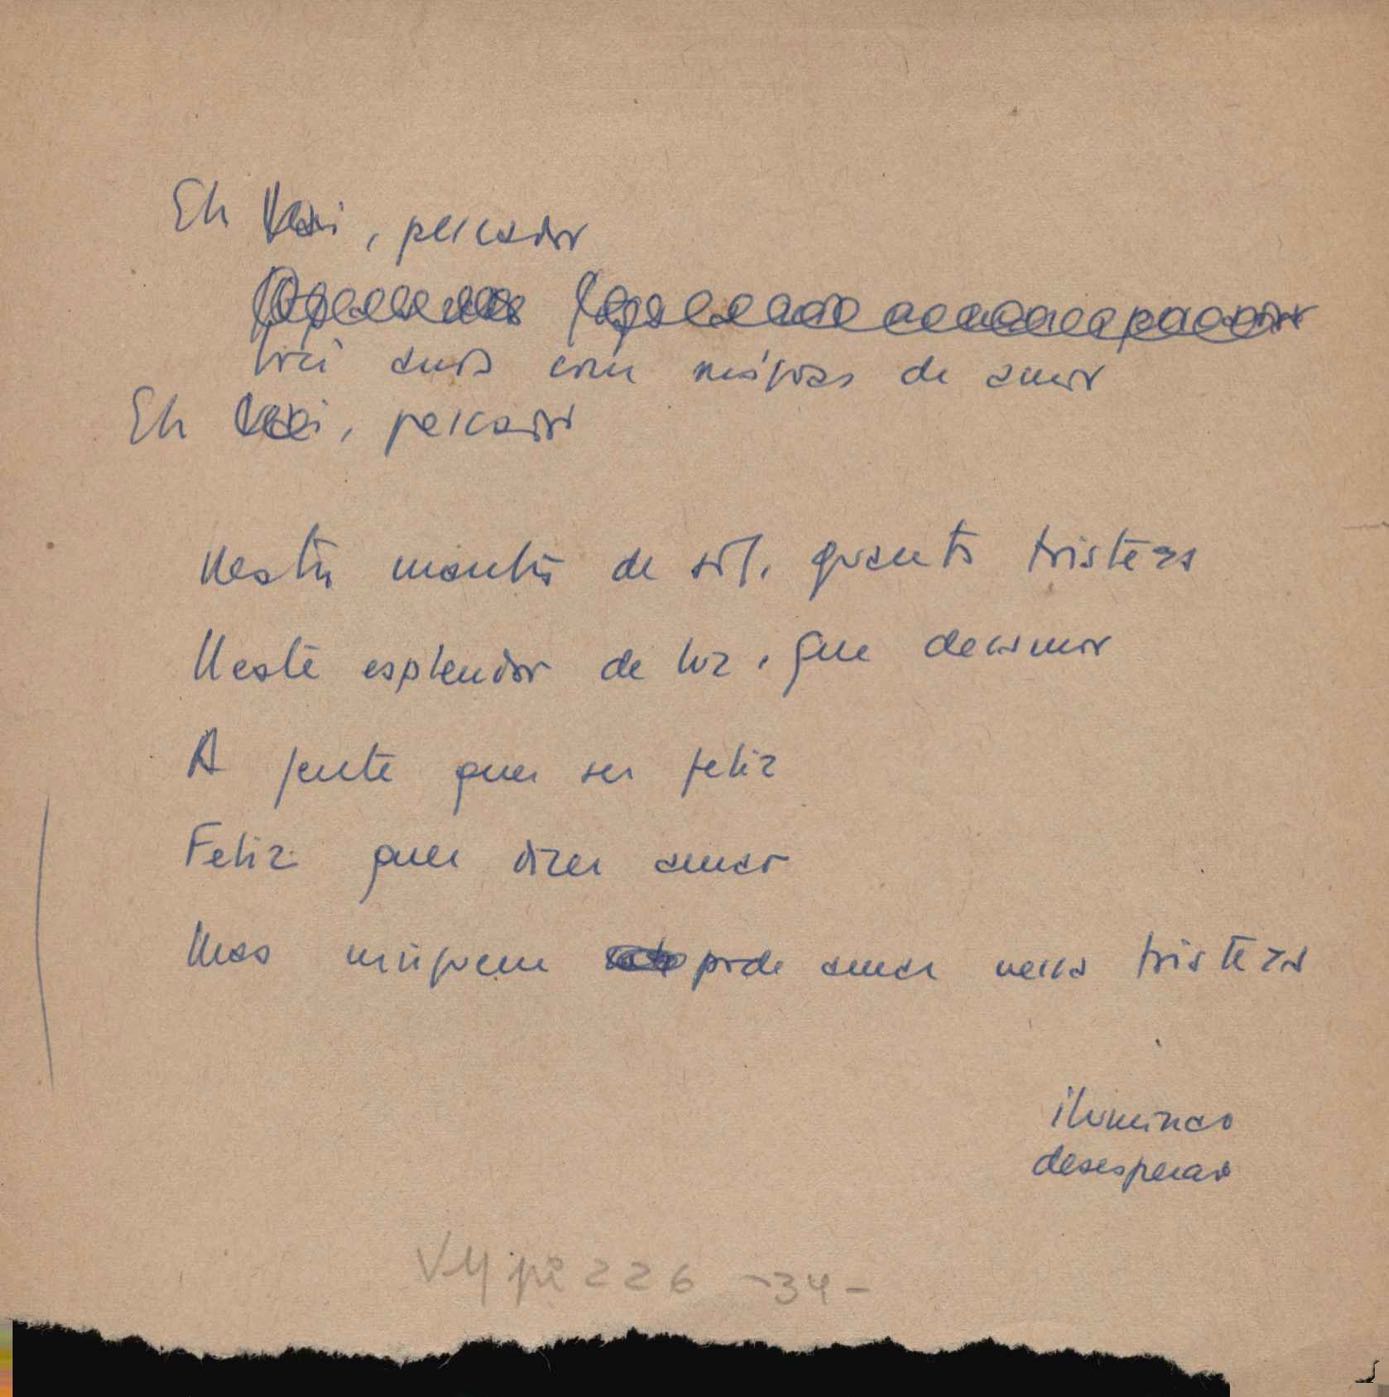 Eh Vai, pescador
Você anda com mágoas de amor
Eh Vai, pescador
Nesta manhã de sol, quanta tristeza
Neste esplendor de luz, que desamor
A gente quer ser feliz
Feliz quer dizer amar
Mas ninguem pode amar nessa tristeza
iluminao
desesperao
VM pi 226 -34-